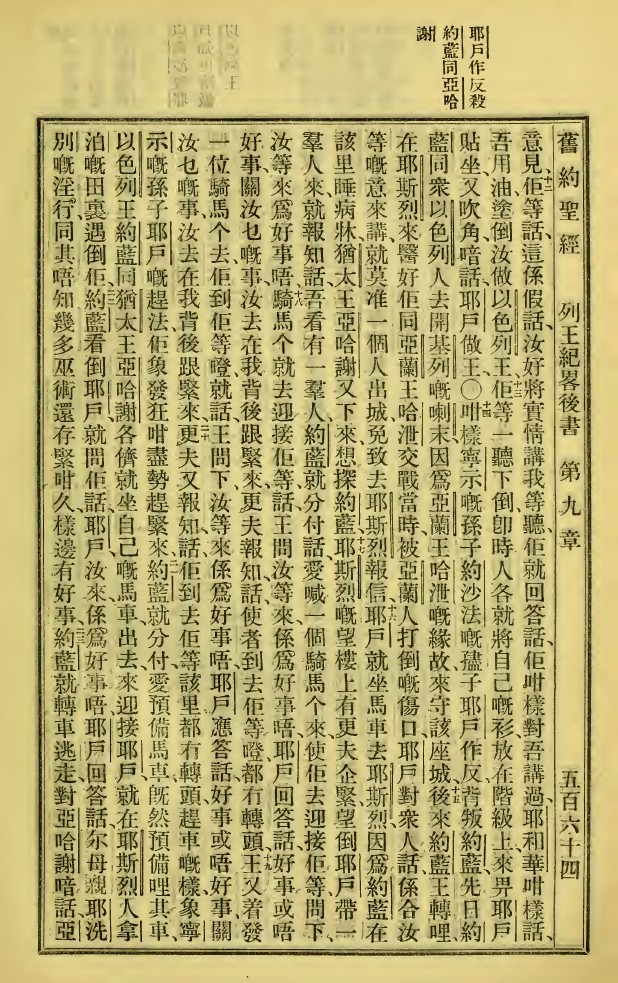 耶戶作反殺
約藍同亞哈
謝
舊約聖經 列王紀畧後書 第九章 五百六十四
意見、十二佢等話、這係假話、汝好將實情講我等聽、佢就回答話、佢咁樣對吾講過、耶和華咁樣話、
吾用油塗倒汝做以色列王、十三佢等一聽下倒、卽時人各就將自己嘅衫放在階級上來畀耶戶
貼坐、又吹角喑話耶戶做王○十四咁樣寧示嘅孫子約沙法嘅𡥧子耶戶作反背叛約藍、先日約
藍同衆以色列人去開基列嘅喇末、因爲亞蘭王哈泄嘅緣故來守該座城、十五後來約藍王轉哩
在耶斯烈來醫好佢同亞蘭王哈泄交戰當時、被亞蘭人打倒嘅傷口、耶戶對衆人話、係合汝
等嘅意來講、就莫准一個人出城、免致去耶斯烈報信、十六耶戶就坐馬車去耶斯烈、因爲約藍在
該里睡病牀、猶太王亞哈謝又下來想探約藍、十七耶斯烈嘅望樓上有更夫企緊、望倒耶戶帶一
羣人來、就報知話、吾看有一羣人、約藍就分付話、愛喊一個騎馬个來、使佢去迎接佢等、問下、
汝等來爲好事唔、十八騎馬个就去迎接佢等話、王問汝等來係爲好事唔、耶戶回答話、好事或唔
好事關汝乜嘅事、汝去在我背後跟緊來、更夫報知話、使者到去佢等噔、都冇轉頭、十九王又着發
一位騎馬个去、佢到佢等噔、就話、王問下、汝等來係爲好事唔、耶戶應答話、好事或唔好事關
汝乜嘅事、汝去在我背後跟緊來、二十更夫又報知話、佢到去佢等該里、都冇轉頭、趕車嘅樣象寧
示嘅孫子耶戶嘅趕法、佢象發狂咁盡勢趕緊來、二一約藍就分付、愛預備馬車、旣然預備哩其車、
以色列王約藍同猶太王亞哈謝、各儕就坐自己嘅馬車出去來迎接耶戶、就在耶斯烈人拿
泊嘅田裏遇倒佢、二二約藍看倒耶戶、就問佢話、耶戶、汝來係爲好事唔、耶戶回答話、尔母親耶洗
別嘅淫行、同其唔知幾多巫術還存緊咁久、樣邊有好事、二三約藍就轉車逃走、對亞哈謝喑話、亞